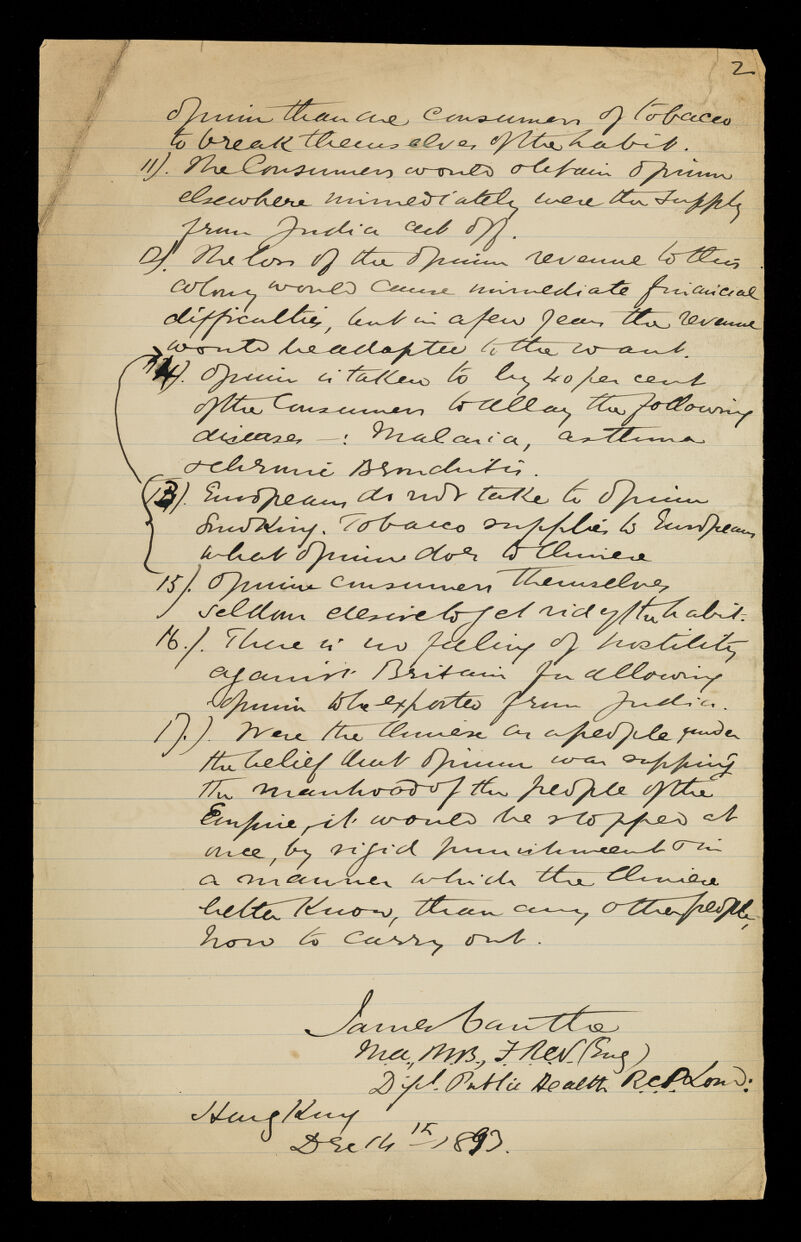 2
opium than are consumers of tobacco
to break themselves of the habit.
11). The Consumers would obtain opium
elsewhere immediately were the supply
from India cut off.
12). The loss of the opium revenue to this
colony would cause immediate financial
difficulties, but in a few years the revenue
would be adapted to the want.
14). Opium is taken to by 40 per cent
of the Consumers to allay the following
diseases -: Malaria, asthma
& chronic Bronchitis.
13). Europeans do not take to opium
smoking. Tobacco supplies to Europeans
what opium does to Chinese
15). Opium consumers themselves
seldom desire to get rid of the habit.
16.). There is no feeling of hostility
against Britain for allowing
opium to be exported from India.
17.). Were the Chinese as a people under
the belief that opium was sapping
the manhood of the people of the
Empire, it would be stopped at
once, by rigid punishment & in
a manner which the Chinese
better know, than any other people,
how to carry out.
James Cantlie
M.A., M.B., F.R.C.S. (Eng)
Dipl. Public Health R.C.P. Lond:
Hong Kong
Dec 14th 1893.